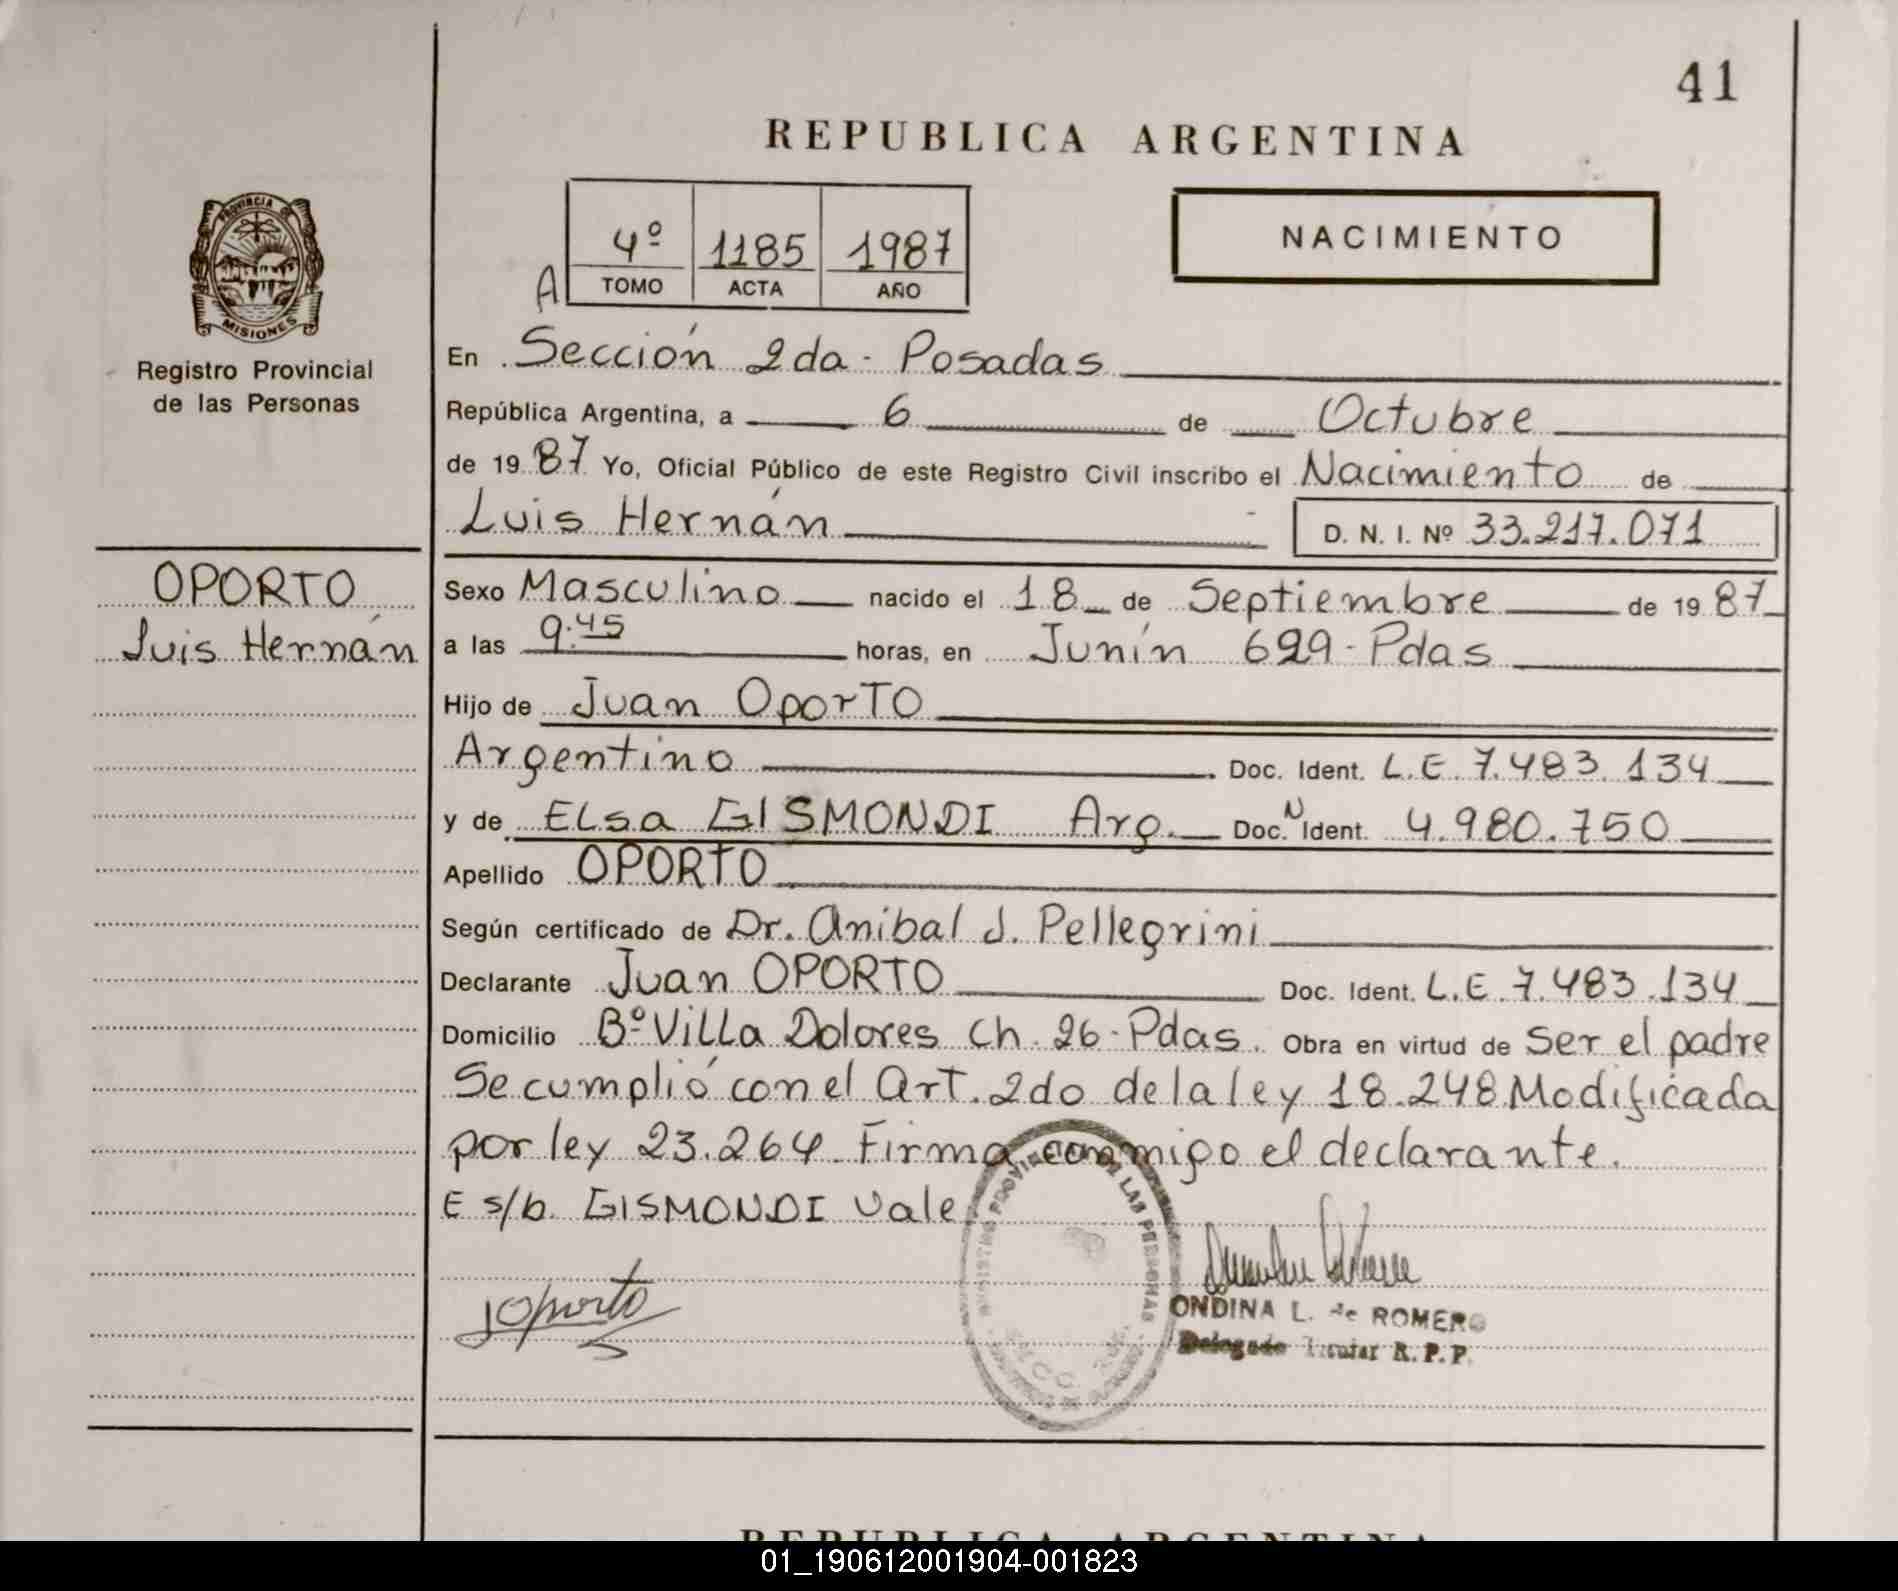 41
REPUBLICA ARGENTINA
4º 1185 1987
A TOMO ACTA AÑO
NACIMIENTO
PROVINCIA DE
MISIONES
Registro Provincial
de las Personas
En Sección 2da - Posadas
República Argentina, a 6 de Octubre
de 1987 Yo, Oficial Público de este Registro Civil inscribo el Nacimiento de
Luis Hernán D. N. I. Nº 33.217.071
OPORTO
Luis Hernán
Sexo Masculino nacido el 18 de Septiembre de 1987
a las 9:45 horas, en Junín 699 - Pdas
Hijo de Juan OporTO
Argentino Doc. Ident. L.E. 7.483.134
y de ELsa GISMONDI Arg. Doc. N Ident. 4.980.750
Apellido OPORTO
Según certificado de Dr. Anibal J. Pellegrini
Declarante Juan OPORTO Doc. Ident. L.E 7.483.134
Domicilio Bº ViLLa Dolores Ch. 26 - Pdas. Obra en virtud de Ser el padre
Se cumplió con el Art. 2do de la ley 18.248 Modificada
por ley 23.264 Firma conmigo el declarante.
E s/b. GISMONDI Vale
JOporto
REGISTRO PROVINCIAL DE LAS PERSONAS
ONDINA L. de ROMERO
Delegado Titular R. P. P.
REPUBLICA ARGENTINA
01_190612001904-001823